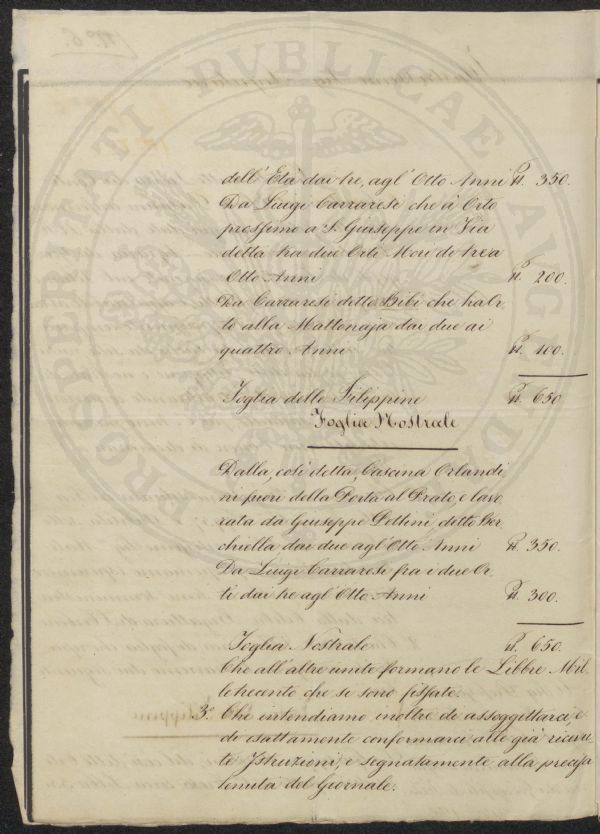 dell' Età dai tre, agl' Otto Anni ℔. 350.
Da Luigi Carraresi che à Orto
prossimo a S. Giuseppe in Via
detta tra due Orti Mori de tre a
Otto Anni ℔. 200.
Da Carraresi detto Bibi che habi,
to alla Mattonaja dai due ai
quattro Anni ℔. 100.
Foglia delle Filippine ℔. 650
Foglia Nostrale
Dalla, così detta, Cascina Orlandi,
ni fuori della Porta al Prato, e lavo,
rata da Giuseppe Pettini detto Ber,
chiella dai due agl' Otto Anni ℔. 350.
Da Luigi Carraresi fra i due Or,
ti dai tre agl' Otto Anni ℔. 300.
Foglia Nostrale ℔. 650.
Che all' altre unite formano le Libbre Mil,
letrecento che si sono fissate.
3º. Che intendiamo inoltre di assoggettarci, e
di esattamente conformarci alle già ricevu,
te Istruzioni, e segnatamente alla precisa
tenuta del Giornale.
Nº 6.
PROSPERITATI PVBLICAE AVG